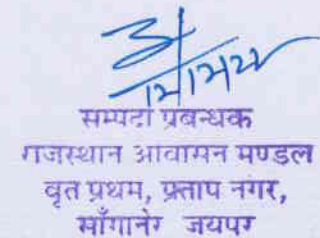 सम्पदा प्रबन्धक
राजस्थान आवासन मण्डल
वृत प्रथम, प्रताप नगर,
साँगानेर जयपुर